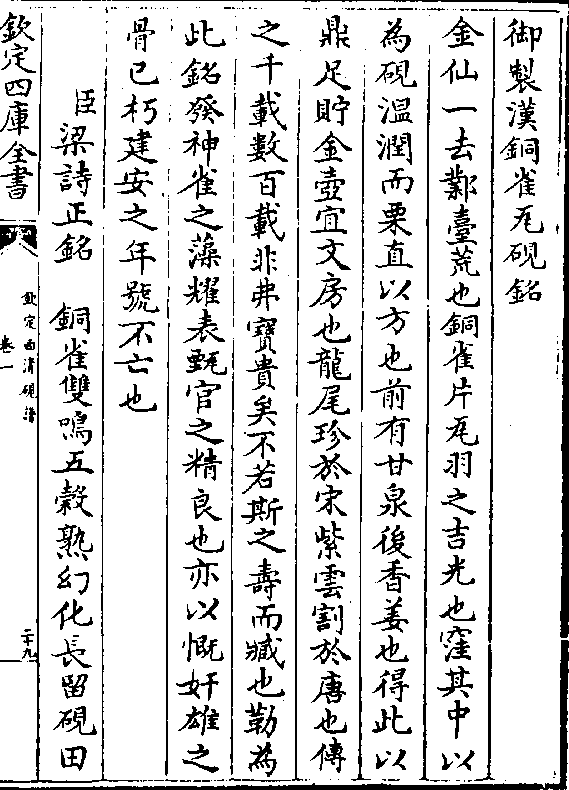 御製漢銅雀瓦硯銘
金仙一去鄴臺荒也銅雀片瓦羽之吉光也窪其中以
為硯溫潤而栗直以方也前有甘泉後香姜也得此以
鼎足貯金壺宜文房也龍尾珍於宋紫雲割於唐也傳
之千載數百載非弗寶貴矣不若斯之壽而臧也勒為
此銘發神雀之藻耀表甄官之精良也亦以慨奸雄之
骨已朽建安之年號不亡也
臣梁詩正銘　銅雀雙鳴五穀熟幻化長留硯田
欽定四庫全書
欽定西清硯譜
卷一
二十九